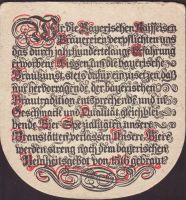 Wir die Bayerischen Raiffeisen
Brauereien verpflichten uns
das durch jahrhundertelange Erfahrung
erworbene Wissen um die bayerische
Braukunst stets dafür einzusetzen, daß
nur hervorragende, der bayerischen
Brautradition entsprechende und in
Geschmack und Qualität gleichblei-
bende Bier-Spezialitäten unsere
Braustätten verlassen. Unsere Biere
werden streng nach dem bayerischen
Reinheitsgebot von 1516 gebraut